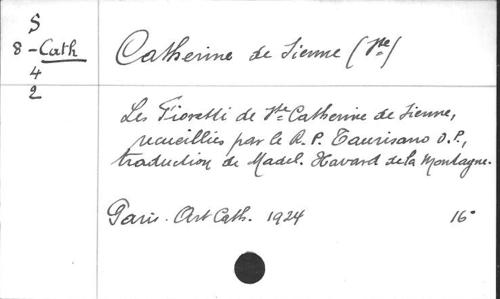 S
8 - Cath
4
2
Catherine de Sienne (Ste)
Les Fioretti de Ste Catherine de Sienne,
recueillies par le R. P. Taurisano O.P.,
traduction de Madel. Havard de la Montagne.
Paris. Art Cath. 1924 16°